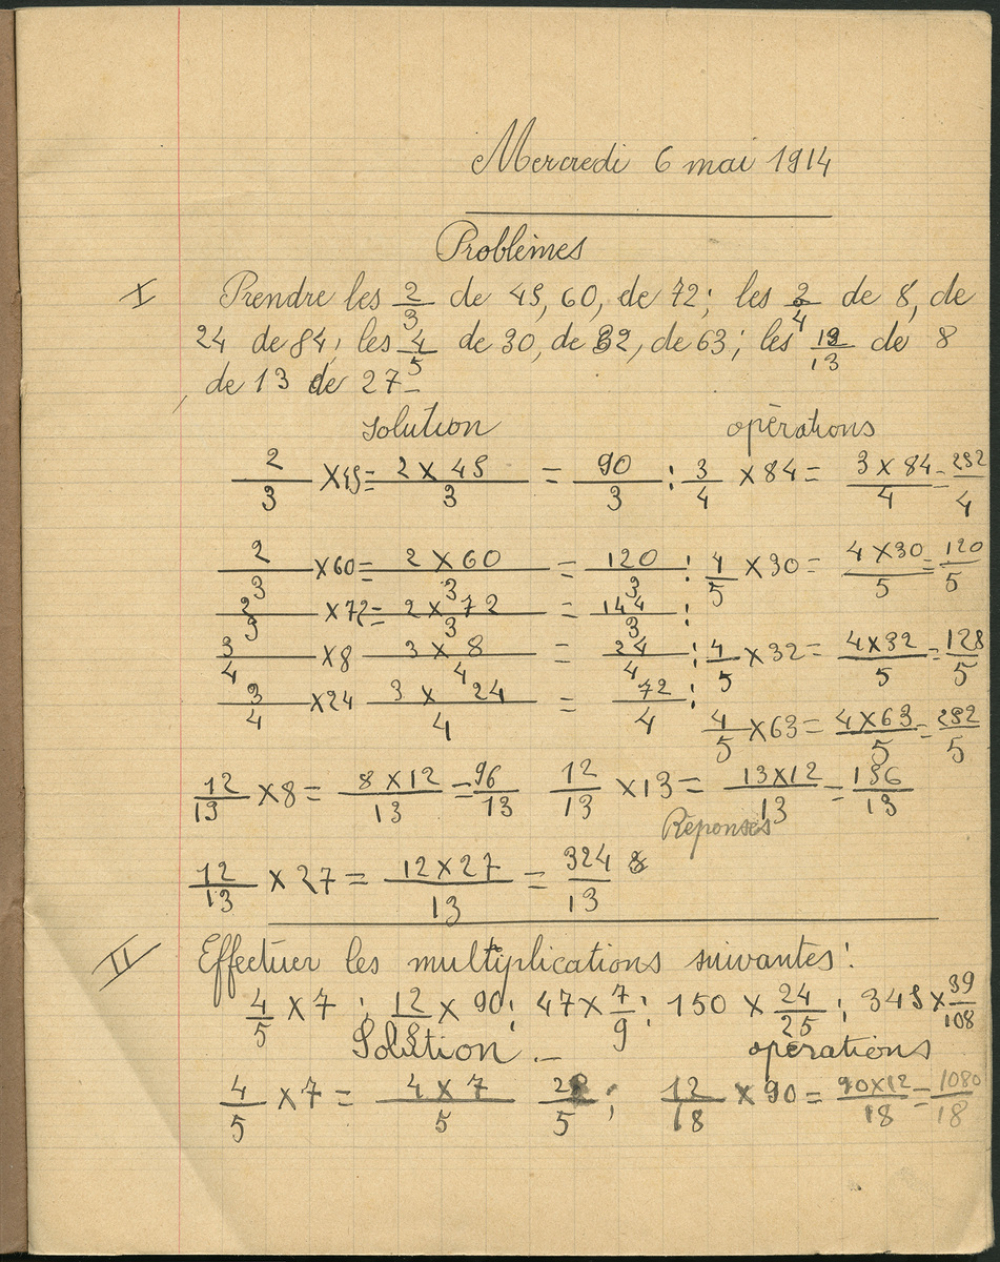 Mercredi 6 mai 1914
Problèmes
I Prendre les 2/3 de 45, 60, de 72; les 3/4 de 8, de
24 de 84, les 4/5 de 30, de 32, de 63; les 12/13 de 8
de 13 de 27_
Solution opérations
2/3 ×45= 2 × 45/3 = 90/3 : 3/4 ×84= 3 × 84/4 = 252/4
2/3 ×60= 2 × 60/3 = 120/3 : 4/5 ×30= 4 ×30/5 = 120/5
2/3 ×72= 2 × 72/3 = 144/3 :
3/4 ×8 3 × 8/4 = 24/4 : 4/5 ×32= 4×32/5 = 128/5
3/4 ×24 3 × 24/4 = 72/4 :
4/5 ×63= 4×63/5 = 252/5
12/13 ×8= 8 ×12/13 = 96/13 12/13 ×13= 13×12/13 = 156/13
Réponses
12/13 × 27 = 12×27/13 = 324/13
II Effectuer les multiplications suivantes:
4/5 × 7 ; 12/18 × 90; 47× 7/9; 150 × 24/25; 345× 39/108
Solution._ opérations
4/5 ×7 = 4 × 7/5 28/5 ; 12/18 × 90= 90×12/18 = 1080/18